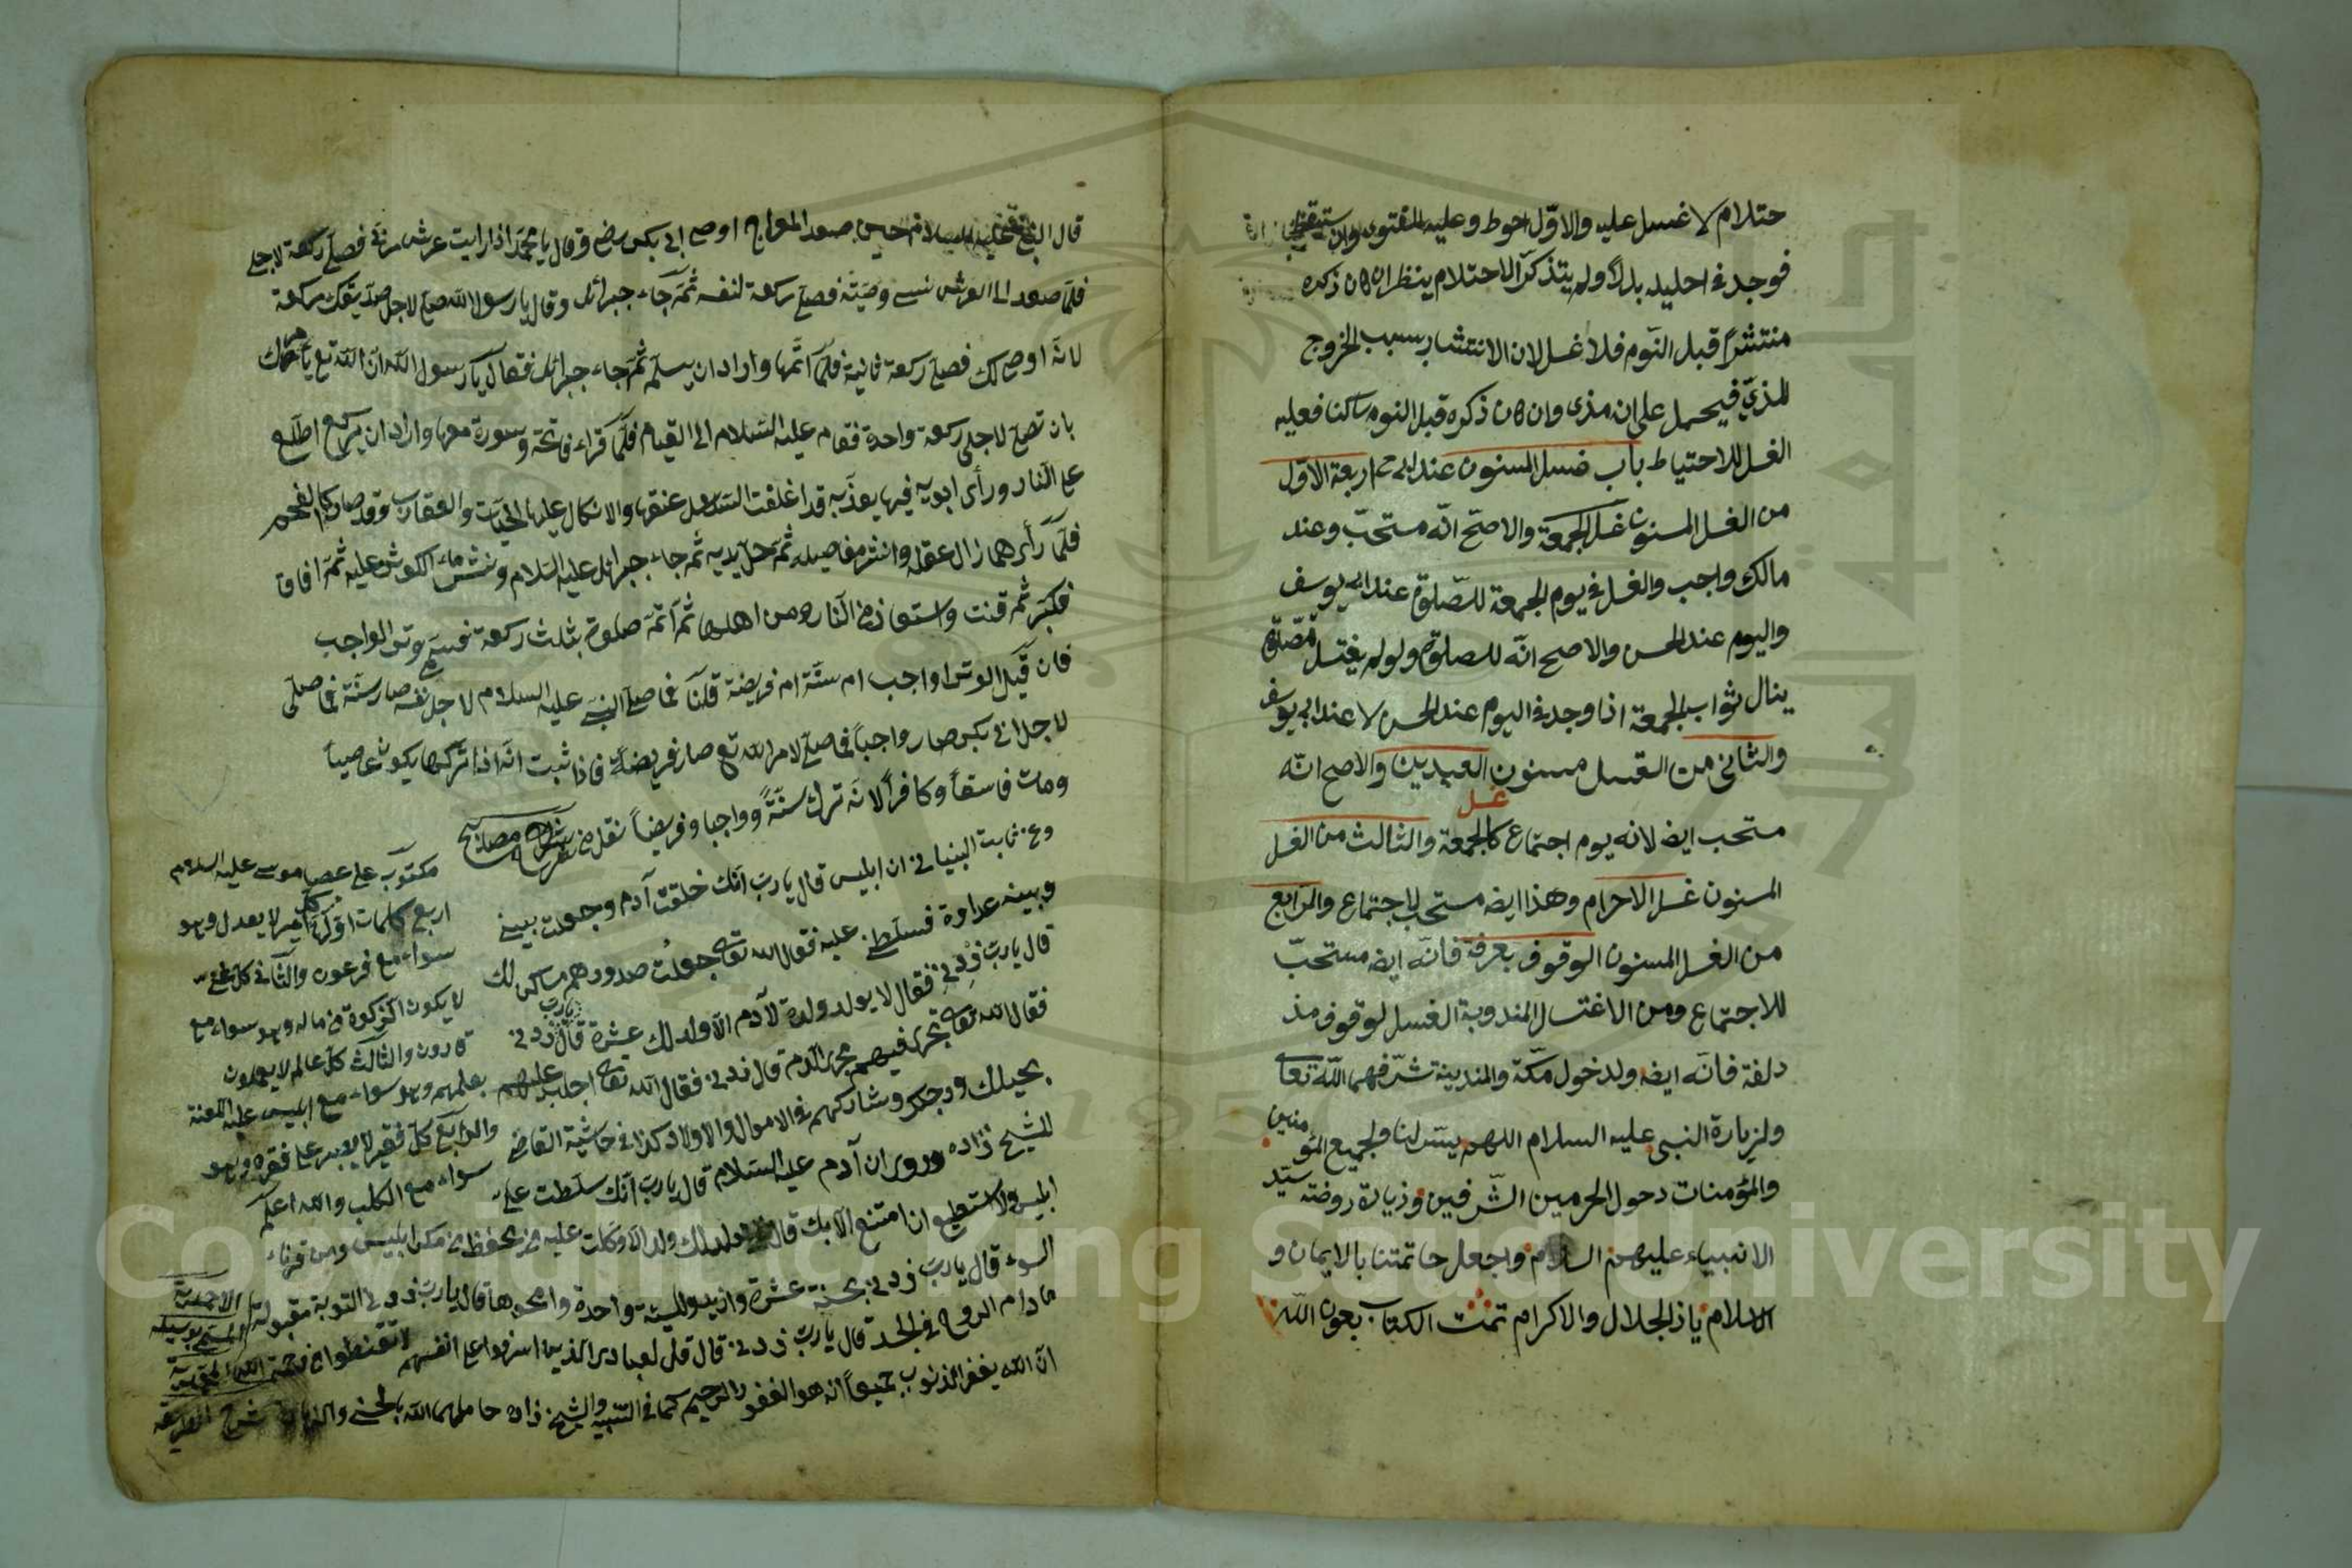 حتلام لا غسل عليه والاوّل احوط وعليه الفتوى وان ستيقظ
فوجد فى احليله بللاً ولم يتذكّر الاحتلام ينظر ان كان ذكره
منتشراً قبل النّوم فلا غسل لان الانتشار سبب الخروج
المذيّ فيحمل على انه مذى وان كان ذكره قبل النوم ساكنا فعليه
الغسل للاحتياط باب غسل المسنون عند ابى ح اربعة الاوّل
من الغسل المسنون غسل الجمعة والاصحّ انّه مستحبّ وعند
مالك واجب والغسل فى يوم الجمعة للصّلوة عند ابى يوسف
واليوم عند الحسن والاصح انّه للصلوة ولو لم يغتسل للصّلوة
ينال ثواب الجمعة اذا وجد فى اليوم عند الحسن لا عند ابى يوسف
والثانى من الغسل مسنون العيدين والاصح انّه
غسل
مستحب ايضا لانه يوم اجتماع كالجمعة والثالث من الغسل
المسنون غسل الاحرام وهذا ايضا مستحب لاجتماع والرّابع
من الغسل المسنون الوقوف بعرفة فانّه ايضا مستحبّ
للاجتماع ومن الاغتسال المندوبة الغسل لوقوف مذ
دلفة فانّه ايضا ولدخول مكّة والمدينة شرّفهما اللّه تعالى
ولزيارة النبى عليه السلام اللهم يسّر لنا ولجميع المؤمنين
والمؤمنات دحول الحرمين الشّرفين وزيارة روضة سيّد
الانبياء عليهم السلام واجعل حاتمتنا بالايمان و
الاسلام يا ذالجلال والاكرام تمّت الكتاب بعون اللّه
قال النبى عليه السلام حين صعد المعراج اوصى ابى بكر رض وقال يا محمّد اذا رايت عرش ربّى فصلّ ركعة لاجلى
فلمّا صعد الى العرش نسى وصيّته فصلّى ركعة لنفسه ثمّ جاء جبرائل وقال يا رسول اللّه صلّ لاجل صدّيقك ركعة
لانّه اوصى لك فصلّى ركعة ثانية فلمّا اتمّها واراد ان يسلّم ثمّ جاء جبرائل فقال يا رسول اللّه انّ اللّه تع يأمرك
بان تصلّى لاجلى ركعة واحدة فقام عليه السّلام الى القيام فلمّا قراء فاتحة وسورة معها واراد ان يركع اطلع
على النّار ورأى ابويه فيها يعذّبه قد اغلقت عنقها والانكال عليها الحيّات والعقارب وقد صار كالفحم
فلمّا رأى هما زال عقله وانشر مفاصيله ثمّ حلّ يديه ثم جاء جبرائل عليه السلام ونشر ماء الكوثر عليه ثمّ افاق
فكبّر ثم قنت واستعاذ من النّار ومن اهلها ثمّ اتمّ صلوة بثلث ركعة فسمّى وتر الواجب
فان قيل الوتر اواجب ام سنّة ام فريضة قلنا فما صلّى النبىّ عليه السلام لاجل نفسه صار سنّة فما صلّى
لاجل ابى بكر صار واجباً فما صلّى لامر اللّه تع صار فريضة فاذا ثبت انّه اذا تركها يكون عاصياً
ومات فاسقاً وكافراً لانّه ترك سنّةً وواجبا وفريضاً نقل من شرح مصابيح
وعن ثابت البنيانى ان ابليس قال يا ربّ انّك خلقت آدم وجعلت بينى
وبينه عداوة فسلّطنى عليه فقال الله تعالى جعلت صدورهم مساكن لك
قال يا ربّ زدنى فقال لا يولد ولد لآدم الّا ولد لك عشرة قال يا ربّ زدنى
فقال الله تعالى تجرى فيهم مجرى الدّم قال زدنى فقال الله تعالى اجلب عليهم
بخيلك ورجلك وشاركهم فى الاموال والاولاد كذا فى حاشية القاضى
للشيخ زاده وروى ان آدم عليه السّلام قال يا ربّ انّك سلّطت علىّ
ابليس ولا استطيع ان امتنع الّا بك قال لا يولد لك ولد الّا وكلت عليه من يحفظ من مكر ابليس ومن قرناء
السوء قال يا ربّ زدنى قال بحسنة عشرة وازيد والسيّئة واحدة وامحوها قال يا ربّ زدنى التوبة مقبولة
ما دام الروح فى الجسد قال يا ربّ زدنى قال قل لعبادى الّذين اسرفوا على انفسهم لا تقنطوا من رحمة الله
انّ اللّه يغفر الذنوب جميعاً انه هو الغفور الرحيم كما فى التنبيه والشيخ زاده
مكتوب على عصا موسى عليه السلام
اربع كلمات اوّلها كلّ امير لا يعدل وهو
سواء مع فرعون والثّانى كل غنىّ
لا يكون الزكوة فى ماله وهو سواء مع
قارون والثالث كلّ عالم لا يعملون
بعلمهم وهو سواء مع ابليس عليه اللعنة
والرّابع كلّ فقير لا يصبر على فقره وهو
سواء مع الكلب والله اعلم